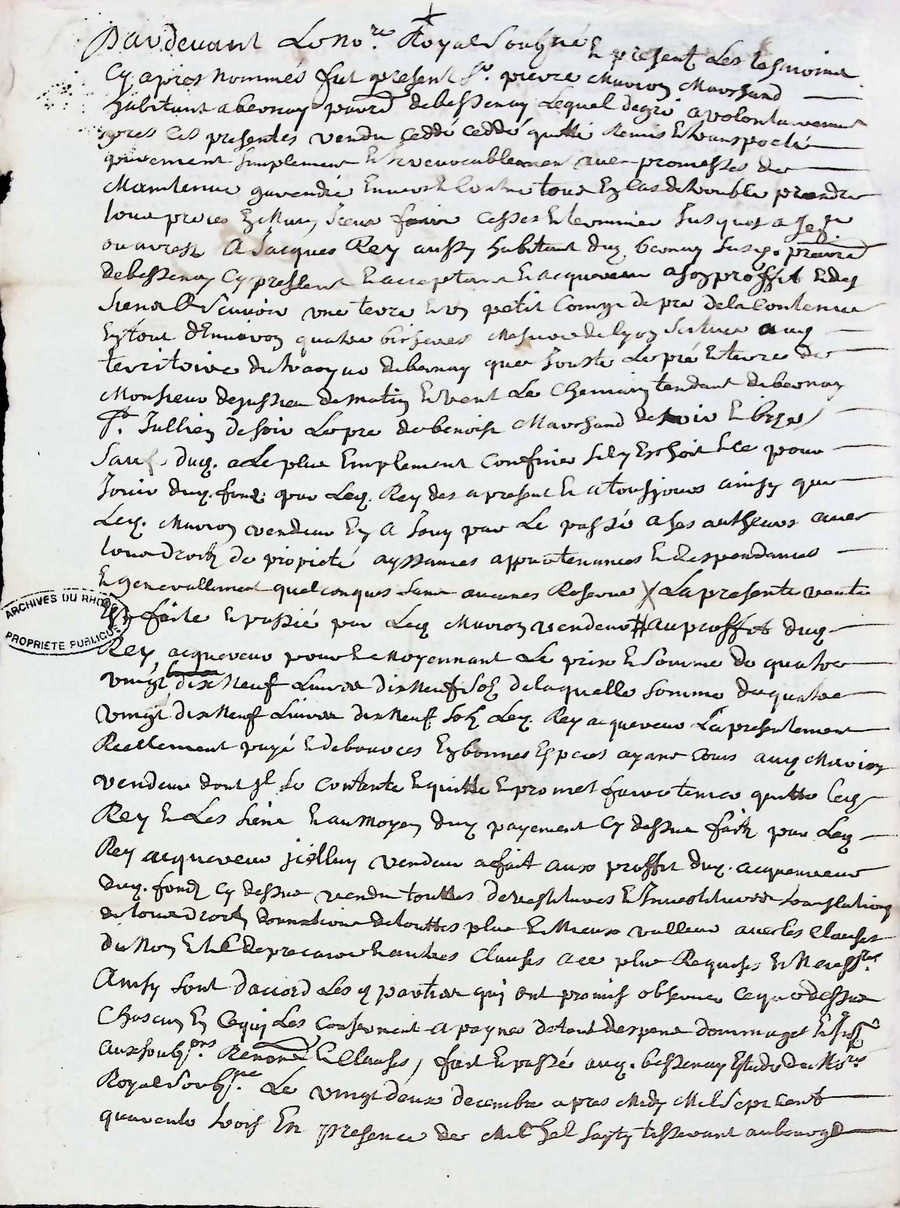 Pardevant Le no.re Royal Soubsigné Et present Les tesmoins
Cy apres nommés fut present Sr. pierre Mavion Marchand
habitant a bernay parrd. de bessenay Lequel degré a volontairement
par ces presentes vendu ceddé ceddé quitté Remis Et transporté
purement simplement Et irrevocablement avec promesse de
Maintenir guarendir Envers et Contre tous En Cas de trouble prendre
tous proces En Main, Iceux faire Cesser Et terminer Jusques a
ou arrest A Jacques Rey aussy habitant dud. bernay susd. parred.
de bessenay Cy present Et acceptant Et acquereur a son proffit Et des
Siens A Scavoir une terre Et un petit Coing de pré de la Contenue
En tout d'Environ quatre bicherées Mesure de lyon scitue aud.
territoire du bernay que Jouste Le pré Et terre de
Monsieur dejussieu de matin Et vent Le Chemin tendant de bernay
St. Jullien de soir Le pré de benoist Marchand de Et bize
Sauf dud. a Le plus Emplement Confiner sil y Escheoit Et ce pour
Jouir dud. fond. par Led. Rey des a present Et a tousjours ainsy que
Led. Mavion vendeur En A Jouy par Le passé a ses autheurs avec
tous droits de propieté aysances appartenances Et despendances
Et generallement quelconques sans aucunes Reserve X La presente vente
Est faite Et passée par Led. Mavion vendeur # au proffit dud.
Rey, acquereur pour Et Moyennant Le prix Et somme de quatre
vingt dix Neuf Livres dix Neuf sols de laquelle somme de quatre
vingt dix Neuf Livres dix Neuf sols Led. Rey acquereur La presentement
Reellement payé Et debources En bonnes Especes ayant Cours aud. Mavion
vendeur dont Il se Contente Et quitte Et promet faire tenir quitte Led.
Rey Et Les siens Et au Moyen dud. payement Cy dessus fait par Led.
Rey acquereur vendeur a fait aux proffit dud. acquereur
dud. fond. Cy dessus vendu touttes devestitures Et Investitures translations
de tous droits donnations de touttes plus Et Mieux valleur avec les Clauses
du Nom Et de precaire Et autres Clauses a ce plus Requises Et Necess.res
Ainsy sont d'accord Les d. parties qui ont promis observer Ce que dessus
Chascun En Ce qui Les Conserment a paynes de tous despens dommages
aux soub.ons Renon.on Et Clauses, fait Et passé aud. bessenay Estude du No.re
Royal Soubsigne. Le vingt deux decembre apres Midy Mil Sept Cent
quarente trois En presence de Michel tisserant au bourg